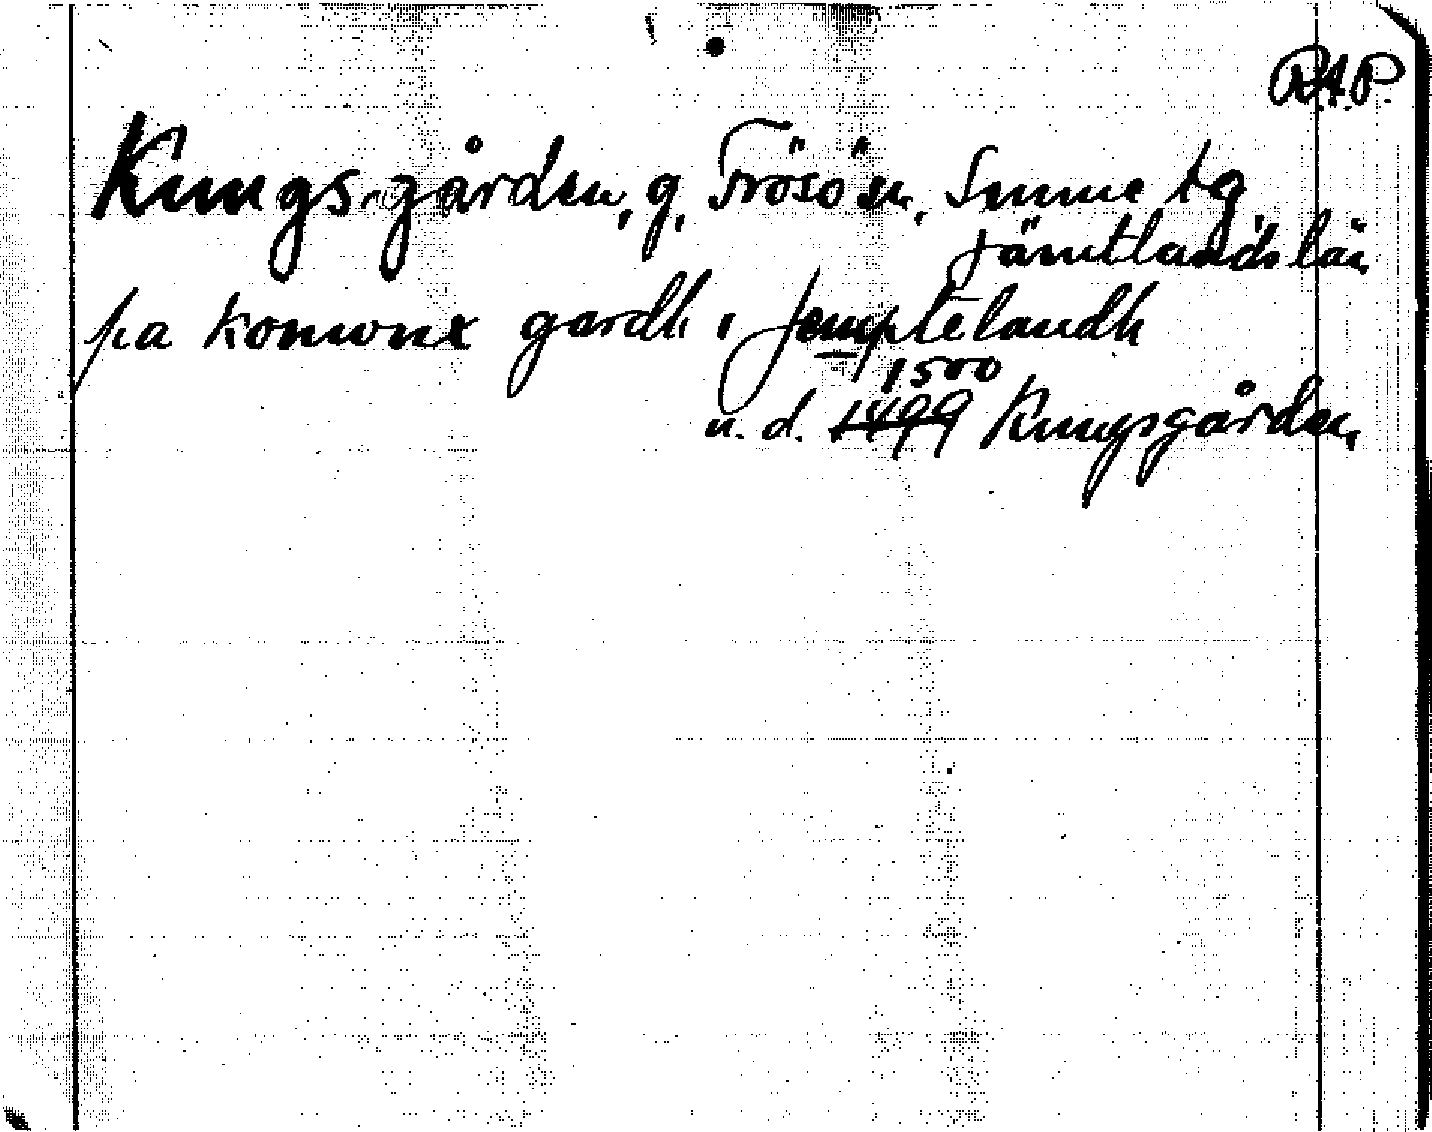 RAP.
Kungsgården, g, Frösö sn, Sunne tg
Jämtlands län
pa konwnx gardh i Jemptelandh
1500
u. d. 1499 Kungsgården,